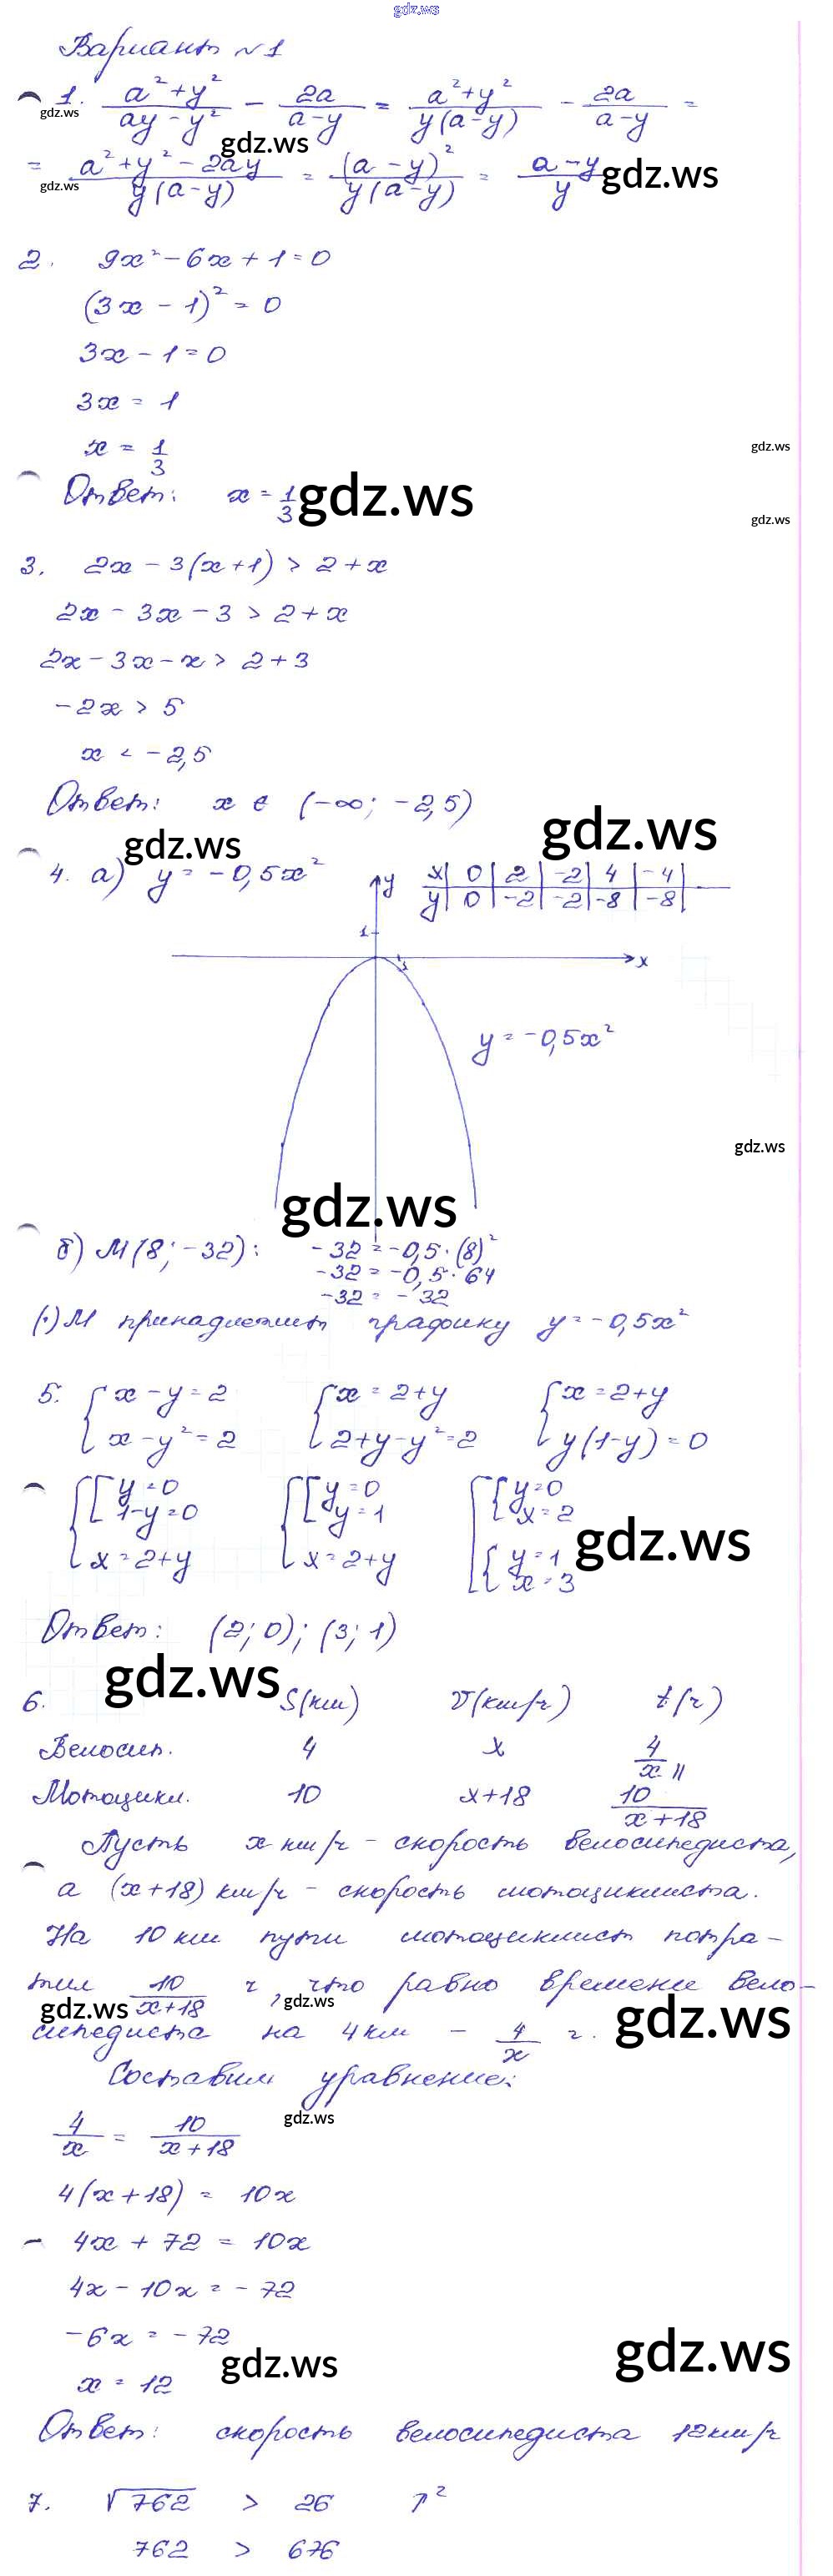 gdz.ws
Вариант №1
1. (a²+y²)/(ay-y²) - 2a/(a-y) = (a²+y²)/(y(a-y)) - 2a/(a-y) =
gdz.ws
gdz.ws
= (a²+y²-2ay)/(y(a-y)) = (a-y)²/(y(a-y)) = (a-y)/y
gdz.ws
gdz.ws
2. 9x²-6x+1=0
(3x-1)²=0
3x-1=0
3x=1
x = 1/3
gdz.ws
Ответ: x=1/3
gdz.ws
gdz.ws
3. 2x-3(x+1) > 2+x
2x-3x-3 > 2+x
2x-3x-x > 2+3
-2x > 5
x < -2,5
Ответ: x ∈ (-∞; -2,5)
gdz.ws
gdz.ws
4. а) y=-0,5x²
y
x | 0 | 2 | -2 | 4 | -4 |
y | 0 | -2 | -2 | -8 | -8 |
1
1
x
y=-0,5x²
gdz.ws
gdz.ws
б) M(8;-32): -32=-0,5·(8)²
-32=-0,5·64
-32=-32
(·)M принадлежит графику y=-0,5x²
5. {x-y=2 {x=2+y {x=2+y
{x-y²=2 {2+y-y²=2 {y(1-y)=0
{[y=0 {[y=0 [{y=0
1-y=0 y=1 x=2
gdz.ws
x=2+y x=2+y {y=1
x=3
Ответ: (2;0); (3;1)
gdz.ws
6. S(км) V(км/ч) t(ч)
Велосип. 4 x 4/x
Мотоцикл. 10 x+18 10/(x+18)
Пусть x км/ч - скорость велосипедиста,
а (x+18) км/ч - скорость мотоциклиста.
На 10 км пути мотоциклист потра-
тил 10/(x+18) ч, что равно времени вело-
gdz.ws
gdz.ws
gdz.ws
сипедиста на 4 км - 4/x ч.
Составим уравнение:
4/x = 10/(x+18)
gdz.ws
4(x+18) = 10x
4x+72 = 10x
4x-10x=-72
-6x=-72
gdz.ws
gdz.ws
x=12
Ответ: скорость велосипедиста 12 км/ч
7. √762 > 26 ↑²
762 > 676